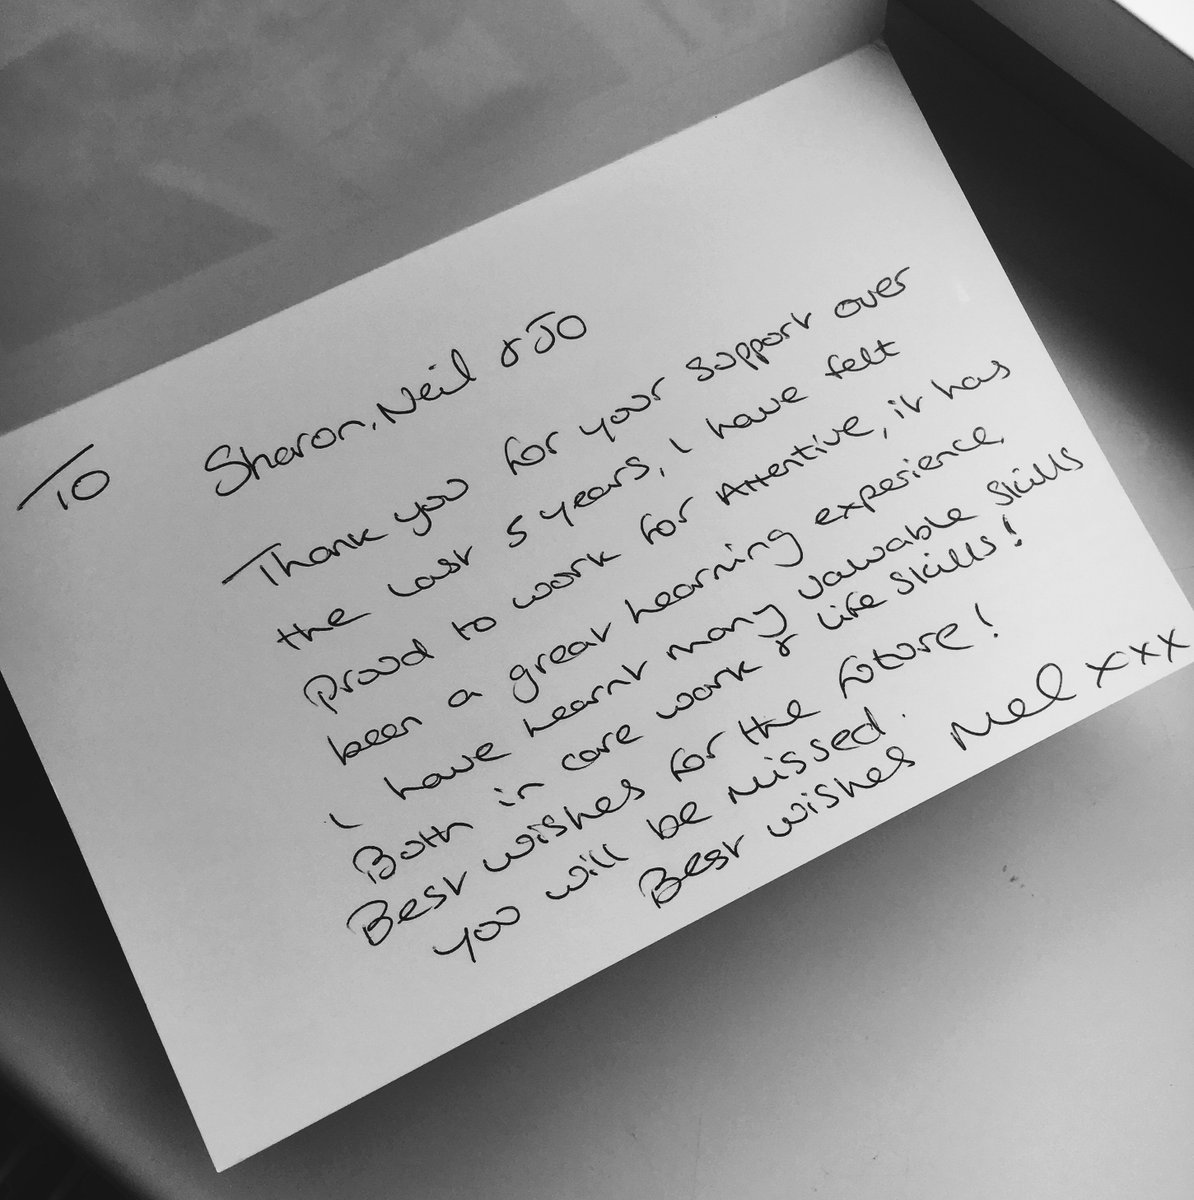 To Sharon, Neil & Jo
Thank you for your support over
the last 5 years, I have felt
proud to work for Attentive, it has
been a great learning experience,
I have learnt many valuable skills
Both in care work & life skills!
Best wishes for the future!
you will be missed.
Best wishes Mel xxx